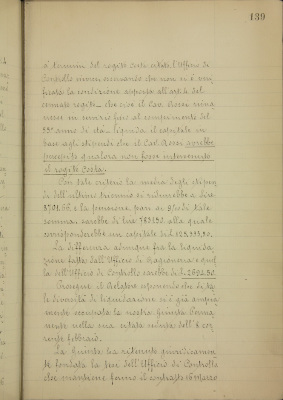 139
a' termini del rogito Costa citato l'Ufficio di
Controllo invece osservando che non si è veri-
ficata la condizione apposta all'art. del
cennato rogito che cioè il Cav. Rossi rima-
nesse in servizio fino al compimento del
55° anno di età liquida il capitale in
base agli stipendi che il Cav. Rossi avrebbe
percepito qualora non fosse intervenuto
il rogito Costa.
Con tale criterio la media degli stipen-
di dell'ultimo triennio si ridurrebbe a Lire
e la pensione pari a dalla
somma sarebbe di Lire alla quale
corrisponderebbe un capitale di L.
La differenza adunque fra la liquida-
zione fatta dall'Ufficio di Ragioneria e quel-
la dell'Ufficio di Controllo sarebbe di L. 2692.50.
il Relatore esponendo che di ta-
le diversità di liquidazione si è già ampia-
mente occupata la nostra Giunta Perma-
nente nella sua citata seduta dell' cor-
rente febbraio.
La Giunta ha ritenuto giuridicamen-
te fondata la tesi dell'Ufficio di Controllo
che mantiene fermo il contratto 16 Marzo